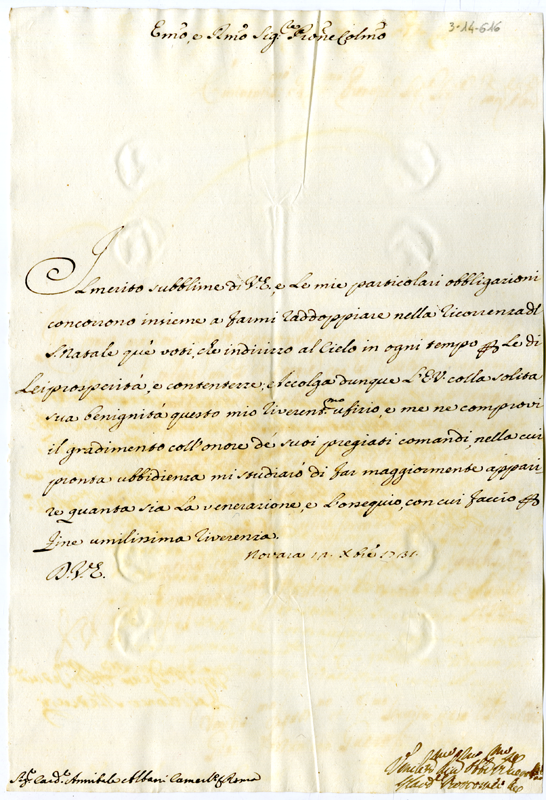 Emo, e Rmo Sigre Prone Colmo
3-14-616
Il merito subblime di V.E., e Le mie particolari obbligazioni
concorrono insieme a farmi raddoppiare nella ricorrenza del
S. Natale què voti, che indirizzo al Cielo in ogni tempo per Le di
Lei prosperità, e contentezze; Accolga dunque L'E.V. colla solita
sua benignità questo mio riverentmo ufizio, e me ne comprovi
il gradimento coll'onore de suoi pregiati comandi, nella cui
pronta ubbidienza mi studiarò di far maggiormente appari-
re quanta sia La venerazione, e L'ossequio, con cui faccio per
fine umilissima riverenza.
Novara 14 Xbre 1731.
D.V.E.
Sigr Cardle Annibale Albani Camerlo Roma